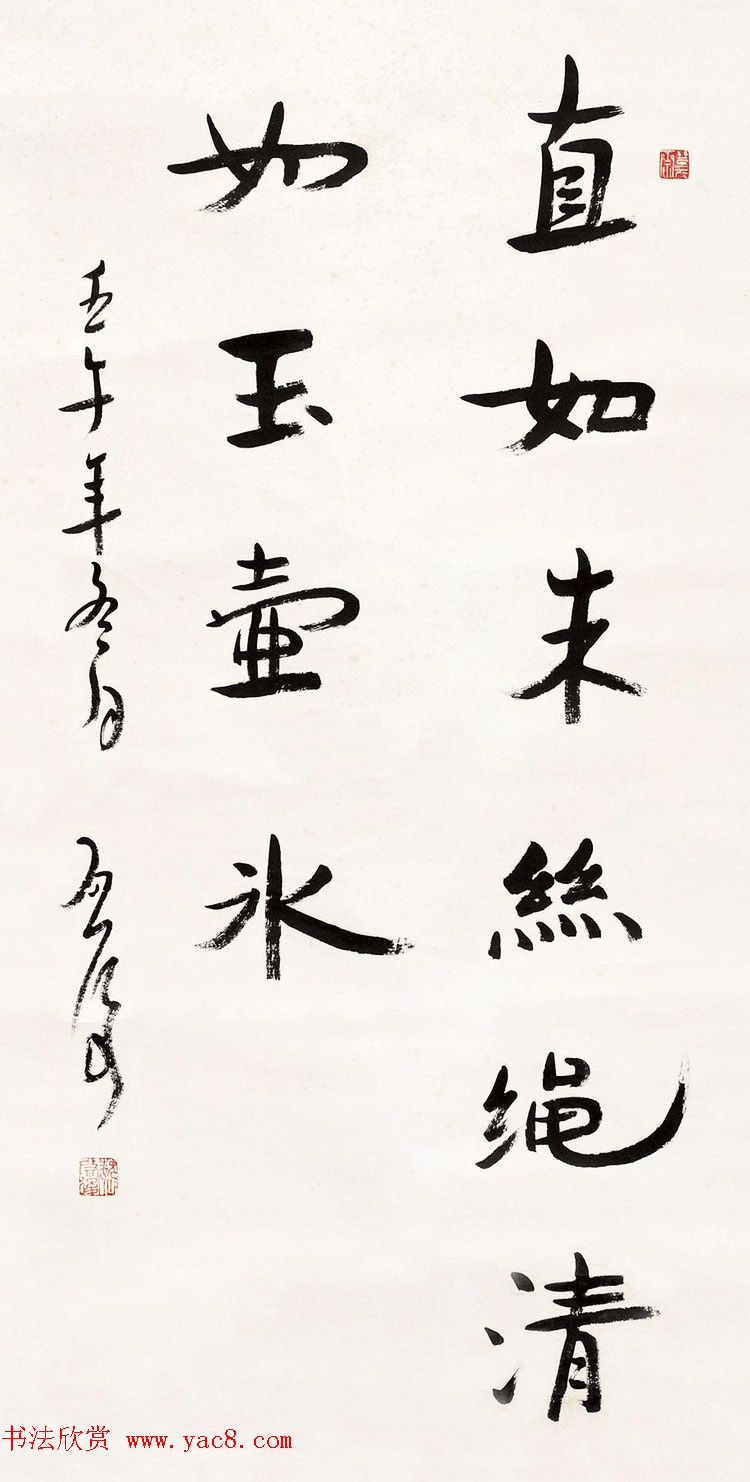 直如朱絲绳清
如玉壺冰
壬午年冬月 启骧
书法欣赏 www.yac8.com